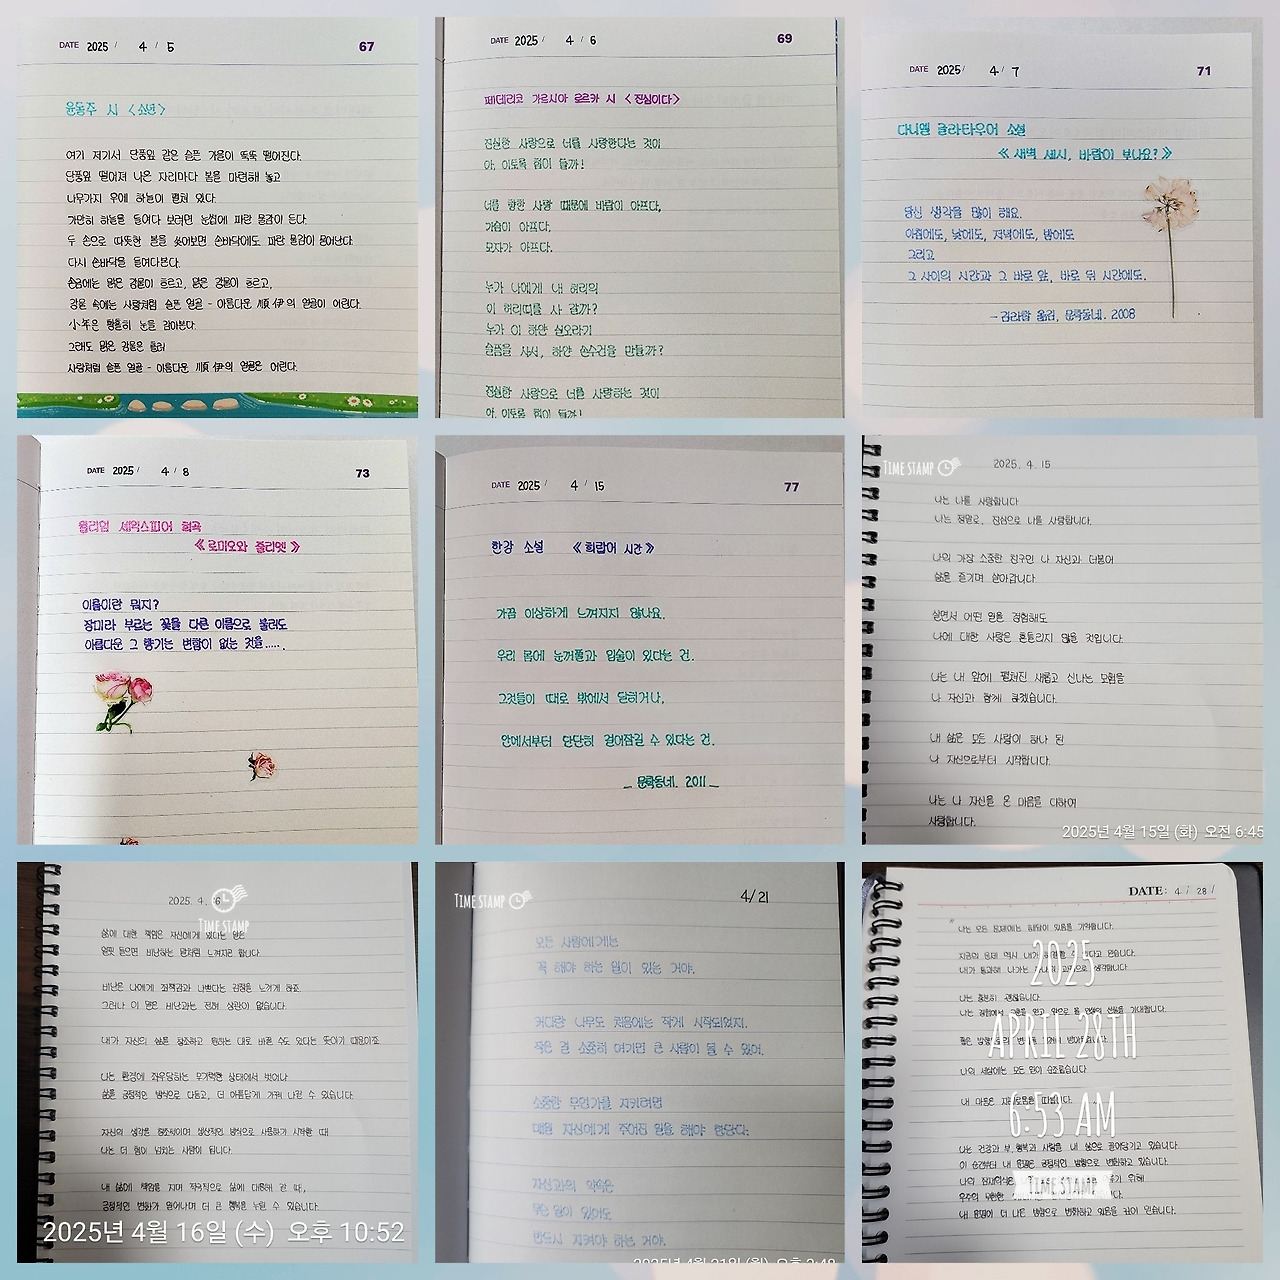 DATE 2025 / 4 / 5 67
윤동주 시 <소년>
여기 저기서 단풍잎 같은 슬픈 가을이 뚝뚝 떨어진다.
단풍잎 떨어져 나온 자리마다 봄을 마련해 놓고
나무가지 우에 하늘이 펼쳐 있다.
가만히 하늘을 들여다 보려면 눈썹에 파란 물감이 든다.
두 손으로 따뜻한 볼을 쓰어보면 손바닥에도 파란 물감이 묻어난다.
다시 손바닥을 들여다본다.
손금에는 맑은 강물이 흐르고, 맑은 강물이 흐르고,
강물 속에는 사랑처럼 슬픈 얼골 - 아름다운 順伊의 얼골이 어린다.
小年은 황홀히 눈을 감어본다.
그래도 맑은 강물은 흘러
사랑처럼 슬픈 얼골 - 아름다운 順伊의 얼골은 어린다.
DATE 2025 / 4 / 6 69
페데리코 가르시아 로르카 시 <진실이다>
진실한 사랑으로 너를 사랑한다는 것이
아, 이토록 힘이 들까!
너를 향한 사랑 때문에 바람이 아프다,
가슴이 아프다.
모자가 아프다.
누가 나에게 내 허리의
이 허리띠를 사 갈까?
누가 이 하얀 실오라기
슬픔을 사서, 하얀 손수건을 만들까?
진실한 사랑으로 너를 사랑하는 것이
아, 이토록 힘이 들까!
DATE 2025 / 4 / 7 71
다니엘 글라타우어 소설
《 새벽 세시, 바람이 부나요? 》
당신 생각을 많이 해요.
아침에도, 낮에도, 저녁에도, 밤에도
그리고
그 사이의 시간과 그 바로 앞, 바로 뒤 시간에도.
- 김라합 옮김, 문학동네. 2008
DATE 2025 / 4 / 8 73
윌리엄 셰익스피어 희곡
《 로미오와 줄리엣 》
이름이란 뭐지?
장미라 부르는 꽃을 다른 이름으로 불러도
아름다운 그 향기는 변함이 없는 것을.....
DATE 2025 / 4 / 15 77
한강 소설 《 희랍어 시간 》
가끔 이상하게 느껴지지 않나요.
우리 몸에 눈꺼풀과 입술이 있다는 건.
그것들이 때로 밖에서 닫히거나,
안에서부터 단단히 걸어잠길 수 있다는 건.
_ 문학동네. 2011 _
TIME STAMP 2025. 4. 15
나는 나를 사랑합니다
나는 정말로, 진심으로 나를 사랑합니다.
나의 가장 소중한 친구인 나 자신과 더불어
삶을 즐기며 살아갑니다.
살면서 어떤 일을 경험해도
나에 대한 사랑은 흔들리지 않을 것입니다.
나는 내 앞에 펼쳐진 새롭고 신나는 모험을
나 자신과 함께 하겠습니다.
내 삶은 모든 사랑이 하나 된
나 자신으로부터 시작합니다.
나는 나 자신을 온 마음을 다하여
사랑합니다.
2025년 4월 15일 (화) 오전 6:45
2025. 4. 16
TIME STAMP
삶에 대한 책임은 자신에게 있다는 말은
얼핏 들으면 비난하는 말처럼 느껴지곤 합니다.
비난은 나에게 죄책감과 나쁘다는 감정을 느끼게 하죠.
그러나 이 말은 비난과는 전혀 상관이 없습니다.
내가 자신의 삶을 창조하고 원하는 대로 바꿀 수도 있다는 뜻이기 때문이죠.
나는 환경에 좌우당하는 무기력한 상태에서 벗어나
삶을 긍정적인 방식으로 다듬고, 더 아름답게 가꿔 나갈 수 있습니다.
자신의 생각을 창조적이며 생산적인 방식으로 사용하기 시작할 때
나는 더 힘이 넘치는 사람이 됩니다.
내 삶에 책임을 지며 적극적으로 삶에 대응해 갈 때,
긍정적인 변화가 일어나며 더 큰 행복을 누릴 수 있습니다.
2025년 4월 16일 (수) 오후 10:52
TIME STAMP 4/21
모든 사람에게는
꼭 해야 하는 일이 있는 거야.
커다란 나무도 처음에는 작게 시작되었지.
작은 걸 소중히 여기면 큰 사람이 될 수 있어.
소중한 무언가를 지키려면
매일 자신에게 주어진 일을 해야 한단다.
자신과의 약속은
무슨 일이 있어도
반드시 지켜야 하는 거야.
DATE: 4 / 28 /
나는 모든 문제에는 해답이 있음을 기억합니다.
2025
나는 충분히 괜찮습니다.
APRIL 28TH
나의 세상에는 모든 일이 순조롭습니다
6:53 AM
나는 건강과 부, 행복과 사랑을 내 삶으로 끌어당기고 있습니다.
이 순간부터 내 문제은 긍정적인 방향으로 변화하고 있습니다.
TIME STAMP
내 문제이 더 나은 방향으로 변화하고 있음을 굳게 믿습니다.